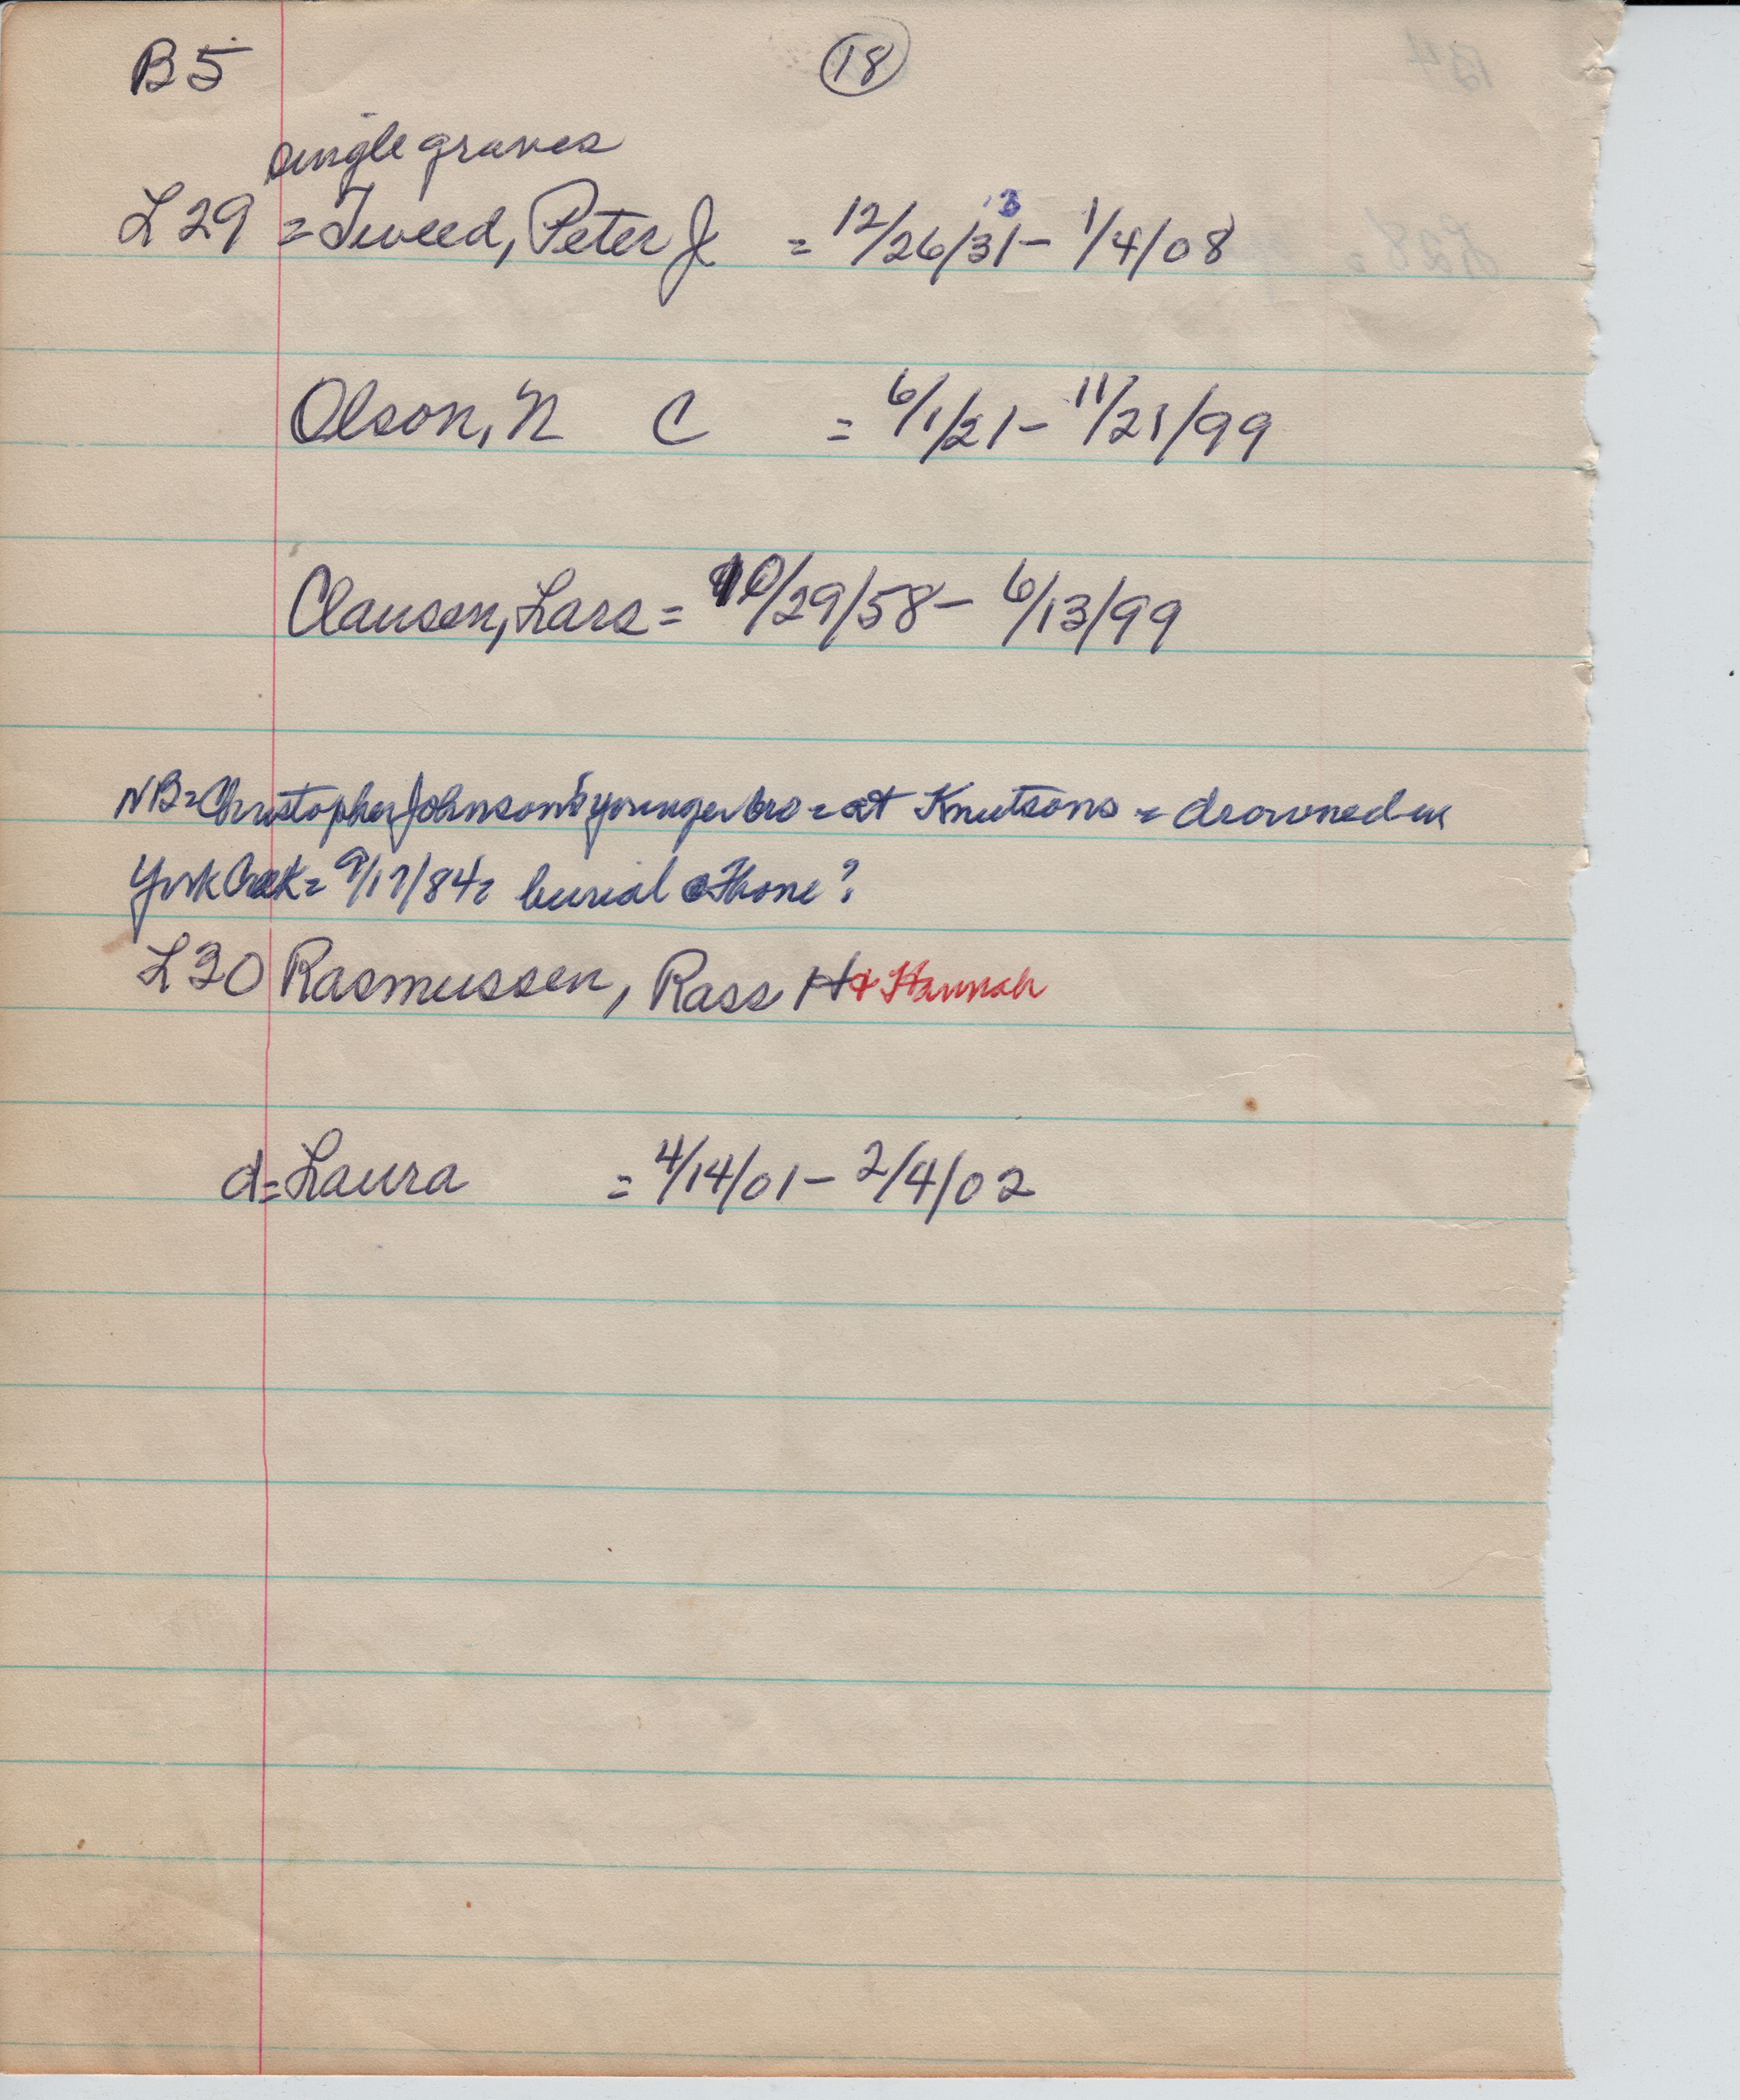 B5 18
single graves
L29 = Tweed, Peter J = 12/26/31 - 1/4/08
Olson, N C = 6/1/21 - 11/21/99
Clausen, Lars = 10/29/58 - 6/13/99
NB = Christopher Johnson's younger bro = at Knutsons = drowned in
York Creek = 9/17/84 = burial @ home?
L30 Rasmussen, Rass H + Hannah
d = Laura = 4/14/01 - 2/4/02